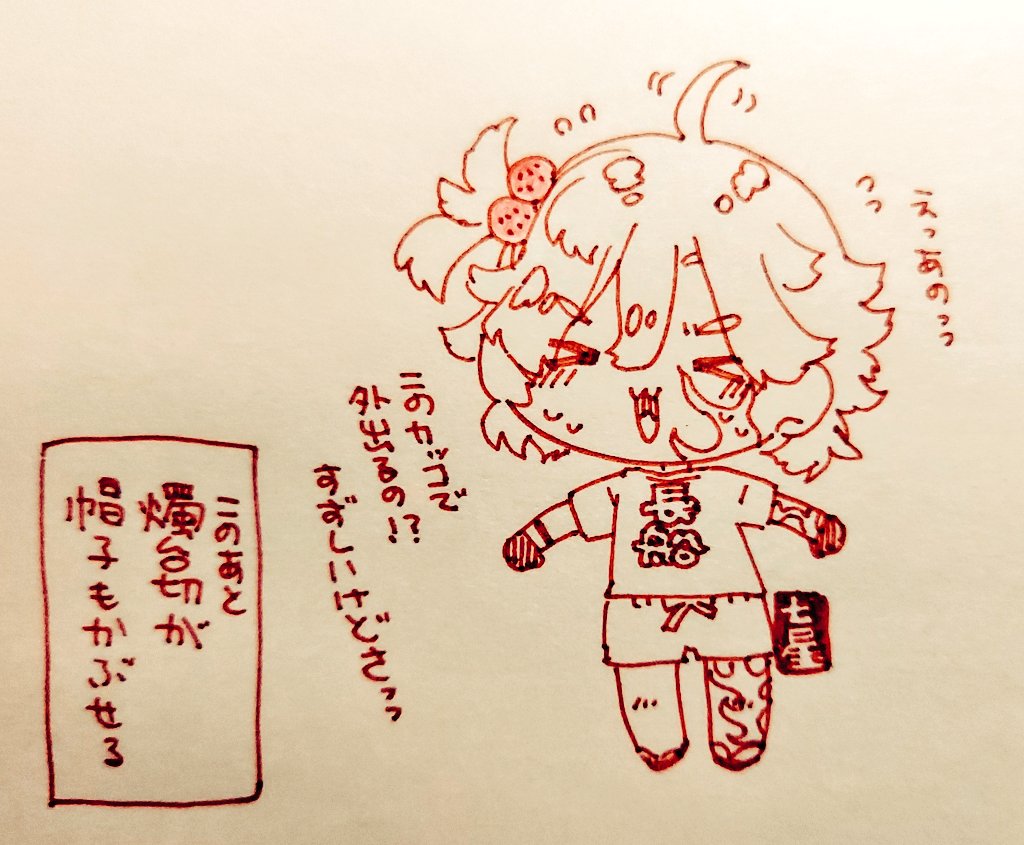 えっあのっっ
このカッコで
外出るの!?
すずしいけどさっっ
七星
このあと
燭台切が
帽子もかぶせる